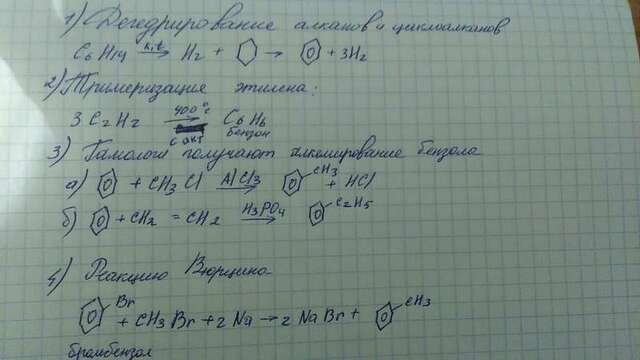 1) Дегедрирование алканов и циклоалканов
C6H14 K,t→ H2 + → + 3H2
2) Тримеризация этилена:
3C2H2 400°C→ C6H6
Cакт бензол
3) Гамологи получают алкомирование бензола
а) + CH3Cl AlCl3→ CH3 + HCl
б) + CH2 = CH2 H3PO4→ C2H5
4) Реакцию Вюрцина
Br + CH3Br + 2Na → 2NaBr + CH3
бромбензол